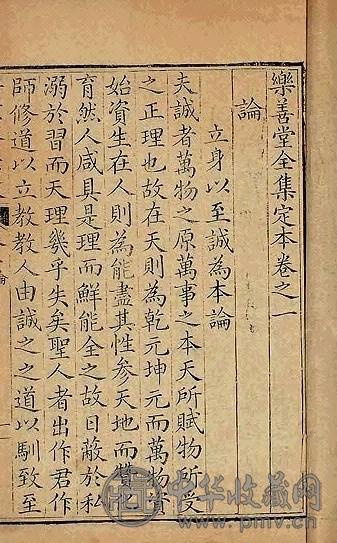 樂善堂全集定本卷之一
論
立身以至誠為本論
夫誠者萬物之原萬事之本天所賦物所受
之正理也故在天則為乾元坤元而萬物資
始資生在人則為能盡其性參天地而贊化
育然人咸具是理而鮮能全之故日蔽於私
溺於習而天理幾乎失矣聖人者出作君作
師修道以立教教人由誠之之道以馴致至
中华收藏网
www.pmv.cn